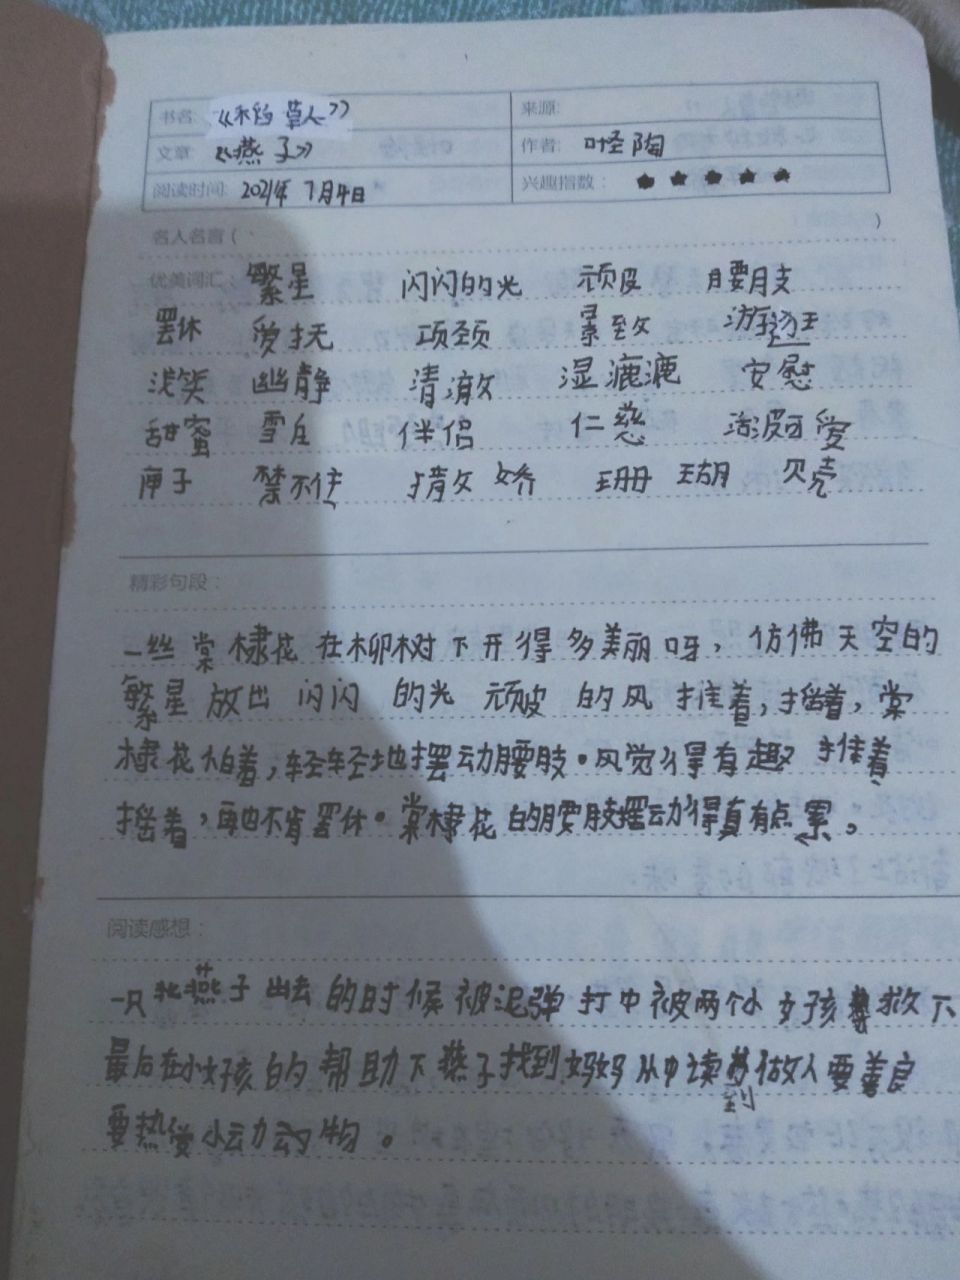 书名: 《稻草人》 来源:
文章: 《燕子》 作者: 叶圣陶
阅读时间: 2021年 7月4日 兴趣指数: ★ ★ ★ ★ ★
名人名言 ( )
优美词汇: 繁星 闪闪的光 顽皮 腰肢
罢休 爱抚 项颈 景致 游逛
浅笑 幽静 清澈 湿漉漉 安慰
甜蜜 雪白 伴侣 仁慈 可爱
匣子 禁不住 娇 珊瑚 贝壳
精彩句段:
一丝棠棣花在柳树下开得多美丽呀，仿佛天空的
繁星放出闪闪的光 顽皮的风推着，摇着，棠
棣花怕着，轻轻地摆动腰肢。风觉得有趣 推着
摇着，再也不肯罢休。棠棣花的腰肢摆动得真有点累。
阅读感想:
一只燕子出去的时候被泥弹打中被两个小女孩救下
最后在小女孩的帮助下燕子找到妈妈 从中读到做人要善良
要热爱小动物。